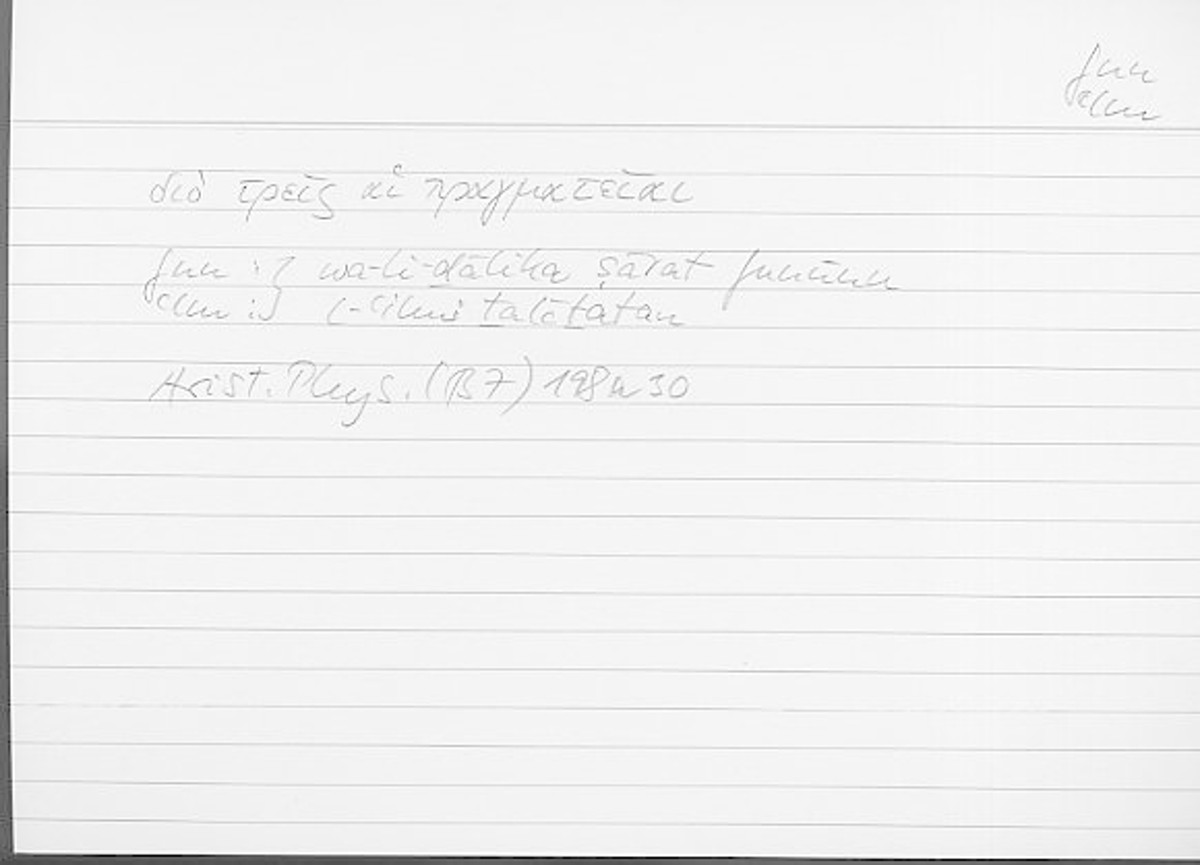 fnn
ʿlm
διὸ τρεῖς αἱ πραγματεῖαι
fnn :} wa-li-ḏālika ṣārat funūnu
ʿlm :} l-ʿilmi ṯalāṯatan
Arist. Phys. (B7) 198a30